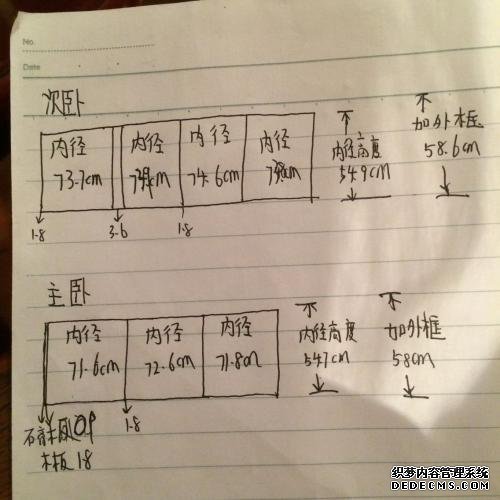 No.
Date
次卧
内径 内径 内径 内径
73.7cm 74.6cm
内径高度
54.9cm
加外框
58.6cm
1.8 3.6 1.8
主卧
内径 内径 内径
71.6cm 72.6cm 71.8cm
内径高度
54.7cm
加外框
58cm
1.8
木板 1.8
织梦内容管理系统
DEDECMS.COM